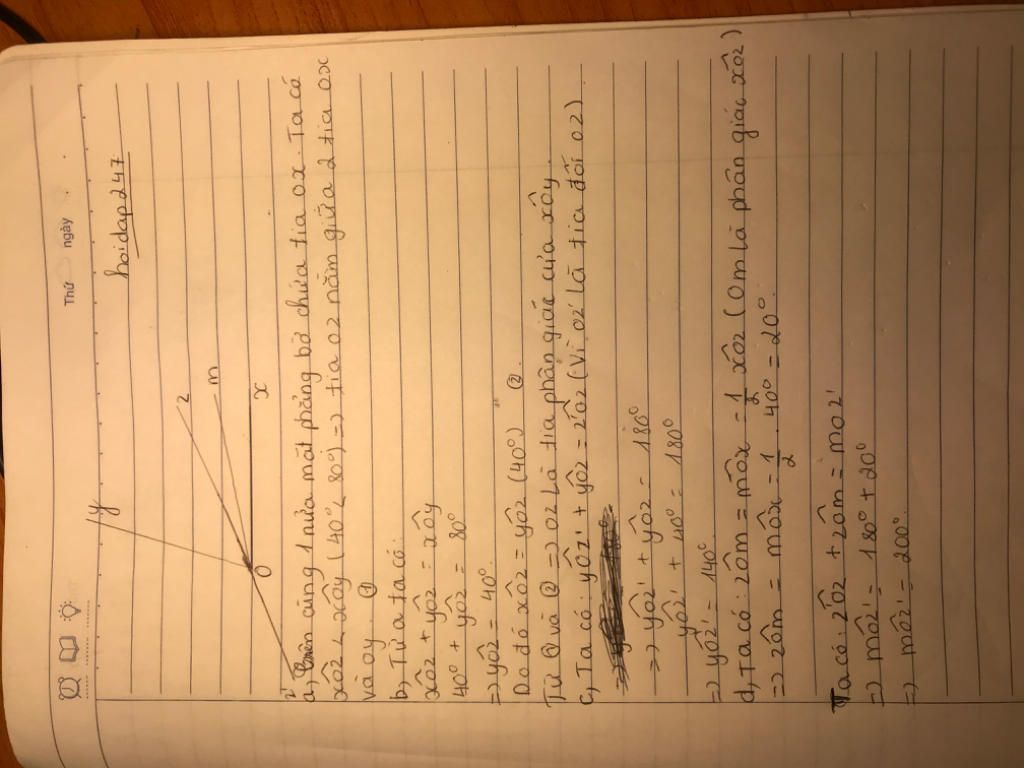 Thứ ngày
hoidap247
y
z
m
O
x
z'
a, Trên cùng 1 nửa mặt phẳng bờ chứa tia Ox. Ta có
xôz < xôy (40° < 80°) => tia Oz nằm giữa 2 tia Ox
và Oy. ①
b, Từ a ta có:
xôz + yôz = xôy
40° + yôz = 80°
=> yôz = 40°.
Do đó xôz = yôz (40°) ②.
Từ ① và ② => Oz là tia phân giác của xôy.
c, Ta có: yôz' + yôz = z'ôz (Vì Oz' là tia đối Oz).
=> yôz' + yôz = 180°
yôz' + 40° = 180°
=> yôz' = 140°.
d, Ta có: zôm = môx = 1/2 xôz (Om là phân giác xôz)
=> zôm = môx = 1/2 . 40° = 20°.
Ta có: z'ôz + zôm = moz'
=> môz' = 180° + 20°
=> môz' = 200°.